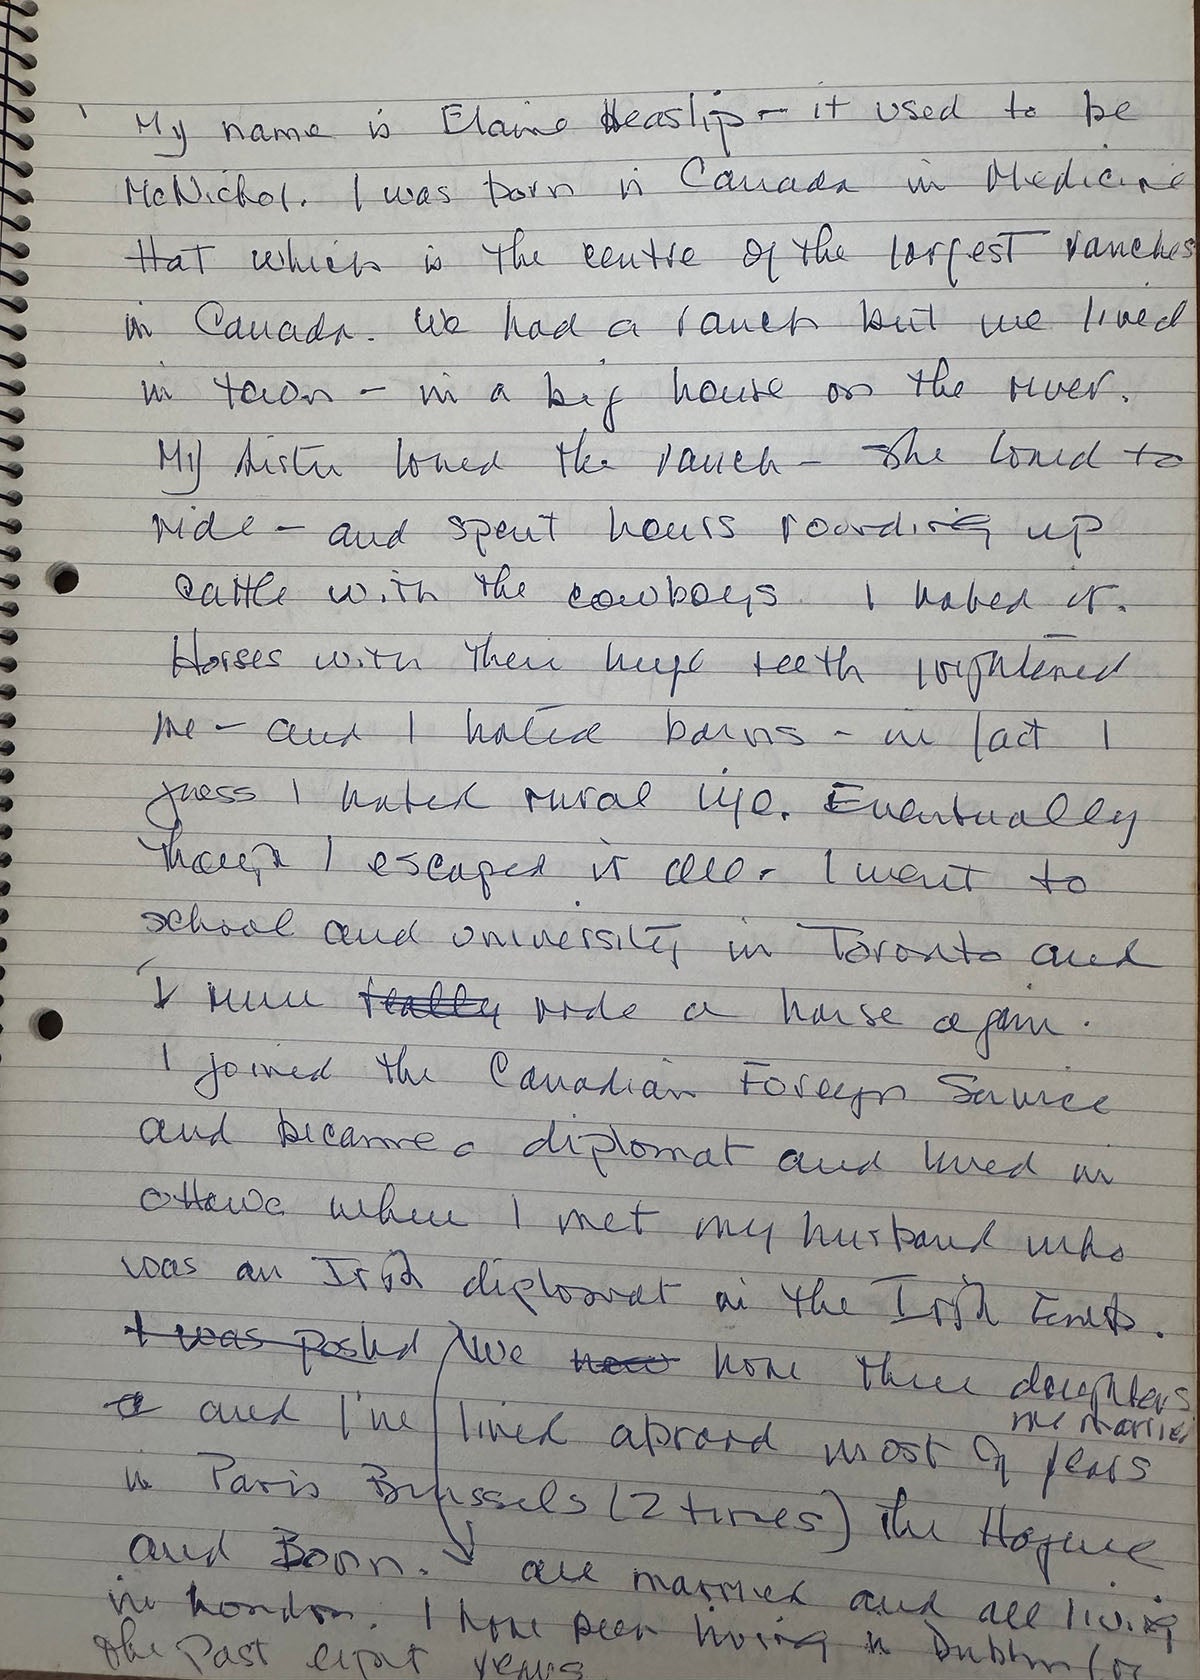 My name is Elaine Heaslip - it used to be
McNichol. I was born in Canada in Medicine
Hat which is the centre of the largest ranches
in Canada. We had a ranch but we lived
in town - in a big house on the river.
My sister loved the ranch - she loved to
ride - and spent hours rounding up
cattle with the cowboys. I hated it.
Horses with their huge teeth frightened
me - and I hated barns - in fact I
guess I hated rural life. Eventually
though I escaped it all. I went to
school and university in Toronto and
I never really rode a horse again.
I joined the Canadian Foreign Service
and became a diplomat and lived in
Ottawa where I met my husband who
was an Irish diplomat in the Irish Emb.
I was posted We now have three daughters
and I've lived abroad most of years
me married
in Paris Brussels (2 times) the Hague
and Bonn. are married and all living
in London. I have been living in Dublin for
the past eight years